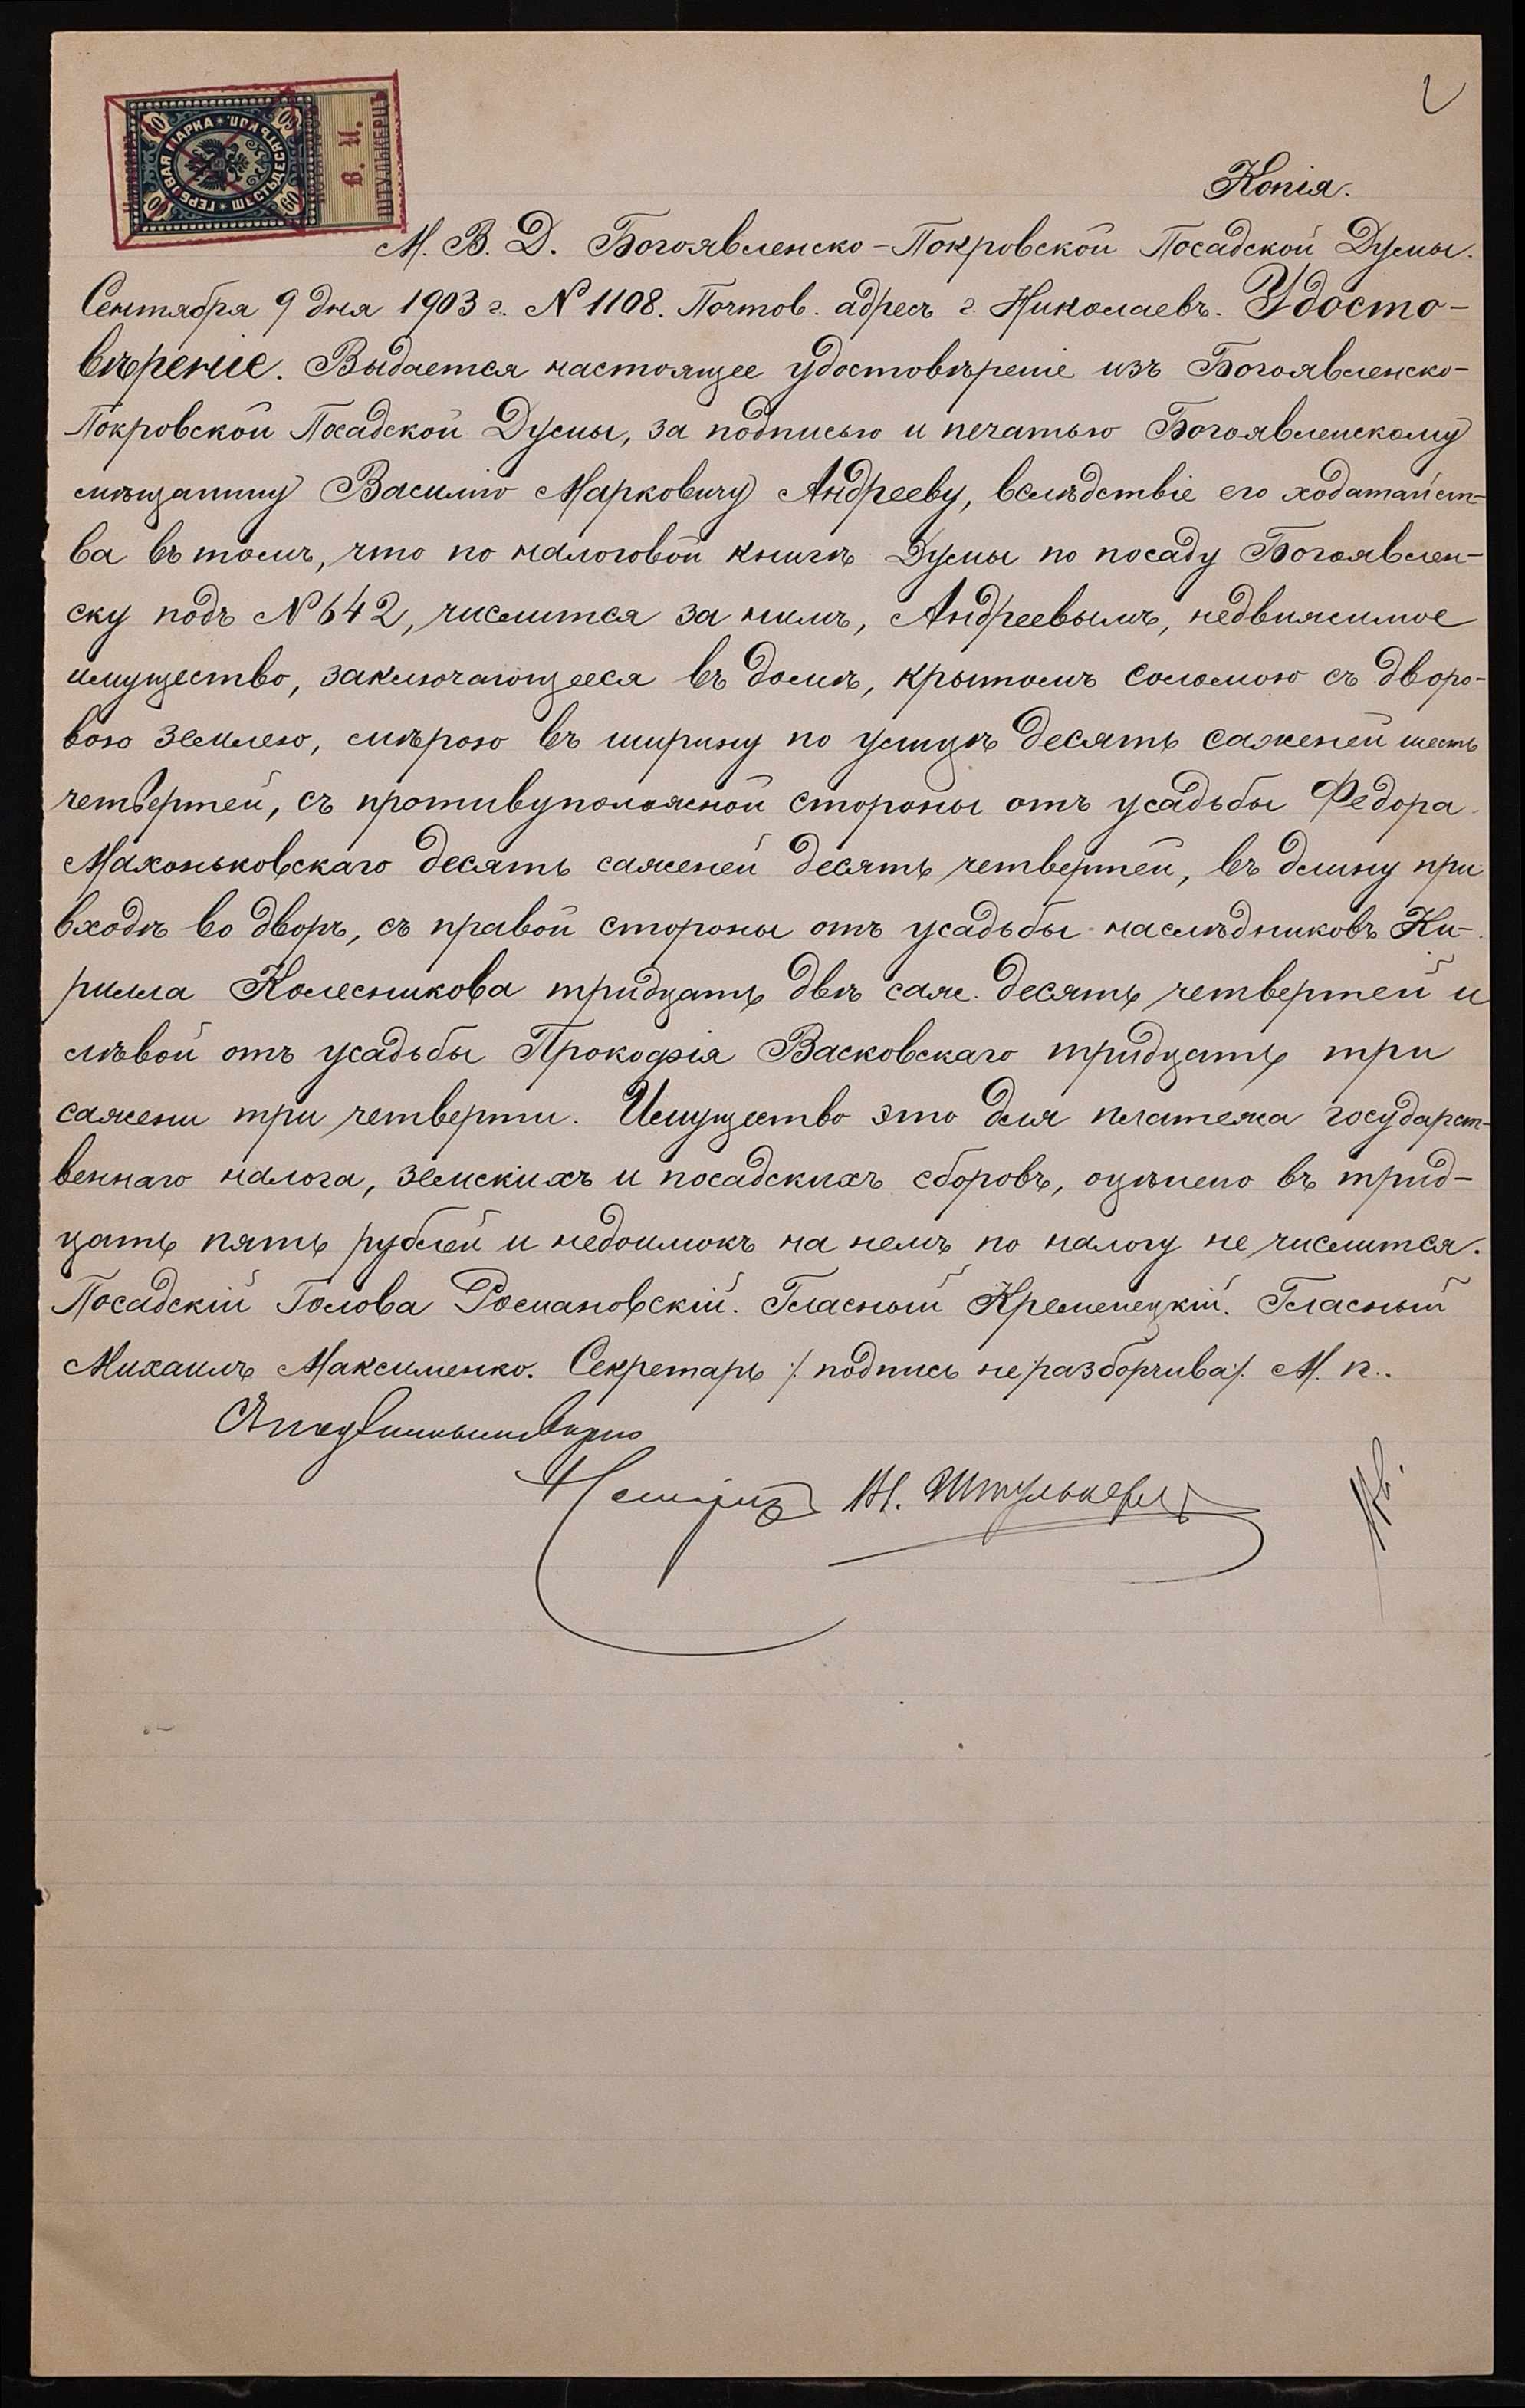 2
ГЕРБОВАЯ МАРКА * ШЕСТЬДЕСЯТЪ КОП.
60 60 60 60
В. И.
ШТУЛЬКЕРЦЪ
Копія.
М. В. Д. Богоявленско-Покровской Посадской Думы.
Сентября 9 дня 1903 г. N 1108. Почтов. адресъ г. Николаевъ. Удосто-
вѣреніе. Выдается настоящее удостовѣреніе изъ Богоявленско-
Покровской Посадской Думы, за подписью и печатью Богоявленскому
мѣщанину Василію Марковичу Андрееву, вслѣдствіе его ходатайст-
ва въ томъ, что по налоговой книгѣ Думы по посаду Богоявлен-
ску подъ N 642, числится за нимъ, Андреевымъ, недвижимое
имущество, заключающееся въ домѣ, крытомъ соломою съ дворо-
вою землею, мѣрою въ ширину по улицѣ десять саженей шесть
четвертей, съ противуположной стороны отъ усадьбы Федора
Махоньковскаго десять саженей десять четвертей, въ длину при
входѣ во дворъ, съ правой стороны отъ усадьбы наслѣдниковъ Ки-
рилла Колесникова тридцать двѣ саж. десять четвертей и
лѣвой отъ усадьбы Прокофія Васковскаго тридцать три
сажени три четверти. Имущество это для платежа государст-
веннаго налога, земскихъ и посадскихъ сборовъ, оцѣнено въ трид-
цать пять рублей и недоимокъ на немъ по налогу не числится.
Посадскій Голова Романовскій. Гласный Кременецкій. Гласный
Михаилъ Максименко. Секретарь /: подпись неразборчива :/. М. п.
Съ подлиннымъ вѣрно
Нотаріусъ В. Штулькерцъ